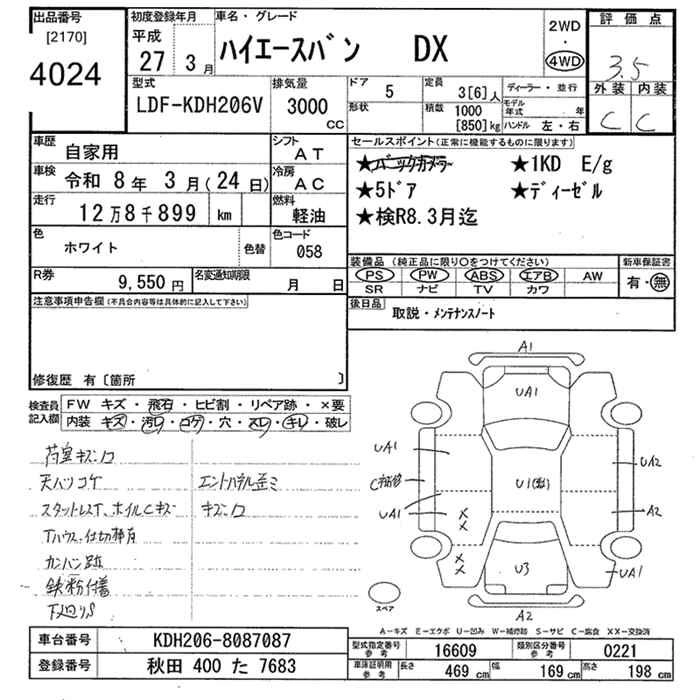 出品番号
[2170]
4024
初度登録年月
平成
27年 3月
車名・グレード
ハイエースバン DX
2WD
・
4WD
評価点
3.5
外装 内装
C C
型式
LDF-KDH206V
排気量
3000
CC
ドア
5
形状
定員
3[6]人
積載
1000
[850]kg
ディーラー・並行
モデル年式 年
ハンドル 左・右
車歴
自家用
シフト
AT
車検
令和 8年 3月(24日)
冷房
AC
走行
12万8千899 km
燃料
軽油
色
ホワイト
色替
色コード
058
R券
9,550円
名変通知期限
月 日
セールスポイント(正常に機能するものに限ります)
★バックカメラー ★1KD E/g
★5ドア ★ディーゼル
★検R8.3月迄
装備品(純正品に限り○をつけてください)
PS PW ABS エアB AW
SR ナビ TV カワ
新車保証書
有・無
後日品
取説・メンテナンスノート
注意事項申告欄(不具合内容等は具体的に記入して下さい)
修復歴 有〔箇所 〕
検査員記入欄
FW キズ・飛石・ヒビ割・リペア跡・×要
内装 キズ・汚レ・コゲ・穴・スレ・キレ・破レ
荷室キズ凹
天ハリコケ エントパネル歪ミ
スタットレスT、ホイルCキズ キズ凹
Tハウス、仕切棒有
カンバン跡
鉄粉付着
下廻りS
A1
UA1
UA1
UA2
C
U1
UA1
A2
××
××
U3
UA1
スペア
A2
A-キズ E-エクボ U-凹み W-補修跡 S-サビ C-腐食 XX-交換済
車台番号
KDH206-8087087
登録番号
秋田 400 た 7683
型式指定番号
参考
16609
類別区分番号
参考
0221
車庫証明用
参考
長さ 469 cm 幅 169 cm 高さ 198 cm